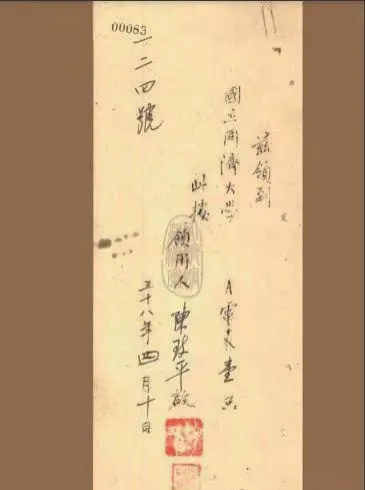 00083
茲領到
國立同濟大學 A電表壹只
此據
領用人 陳 平
十八年四月十日
一二四號